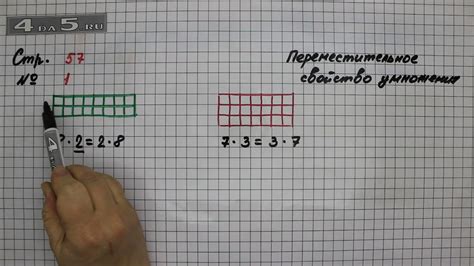 4ДА5.RU
Стр. 57
№ 1
Переместительное
свойство умножения
· 2 = 2 · 8
7 · 3 = 3 · 7